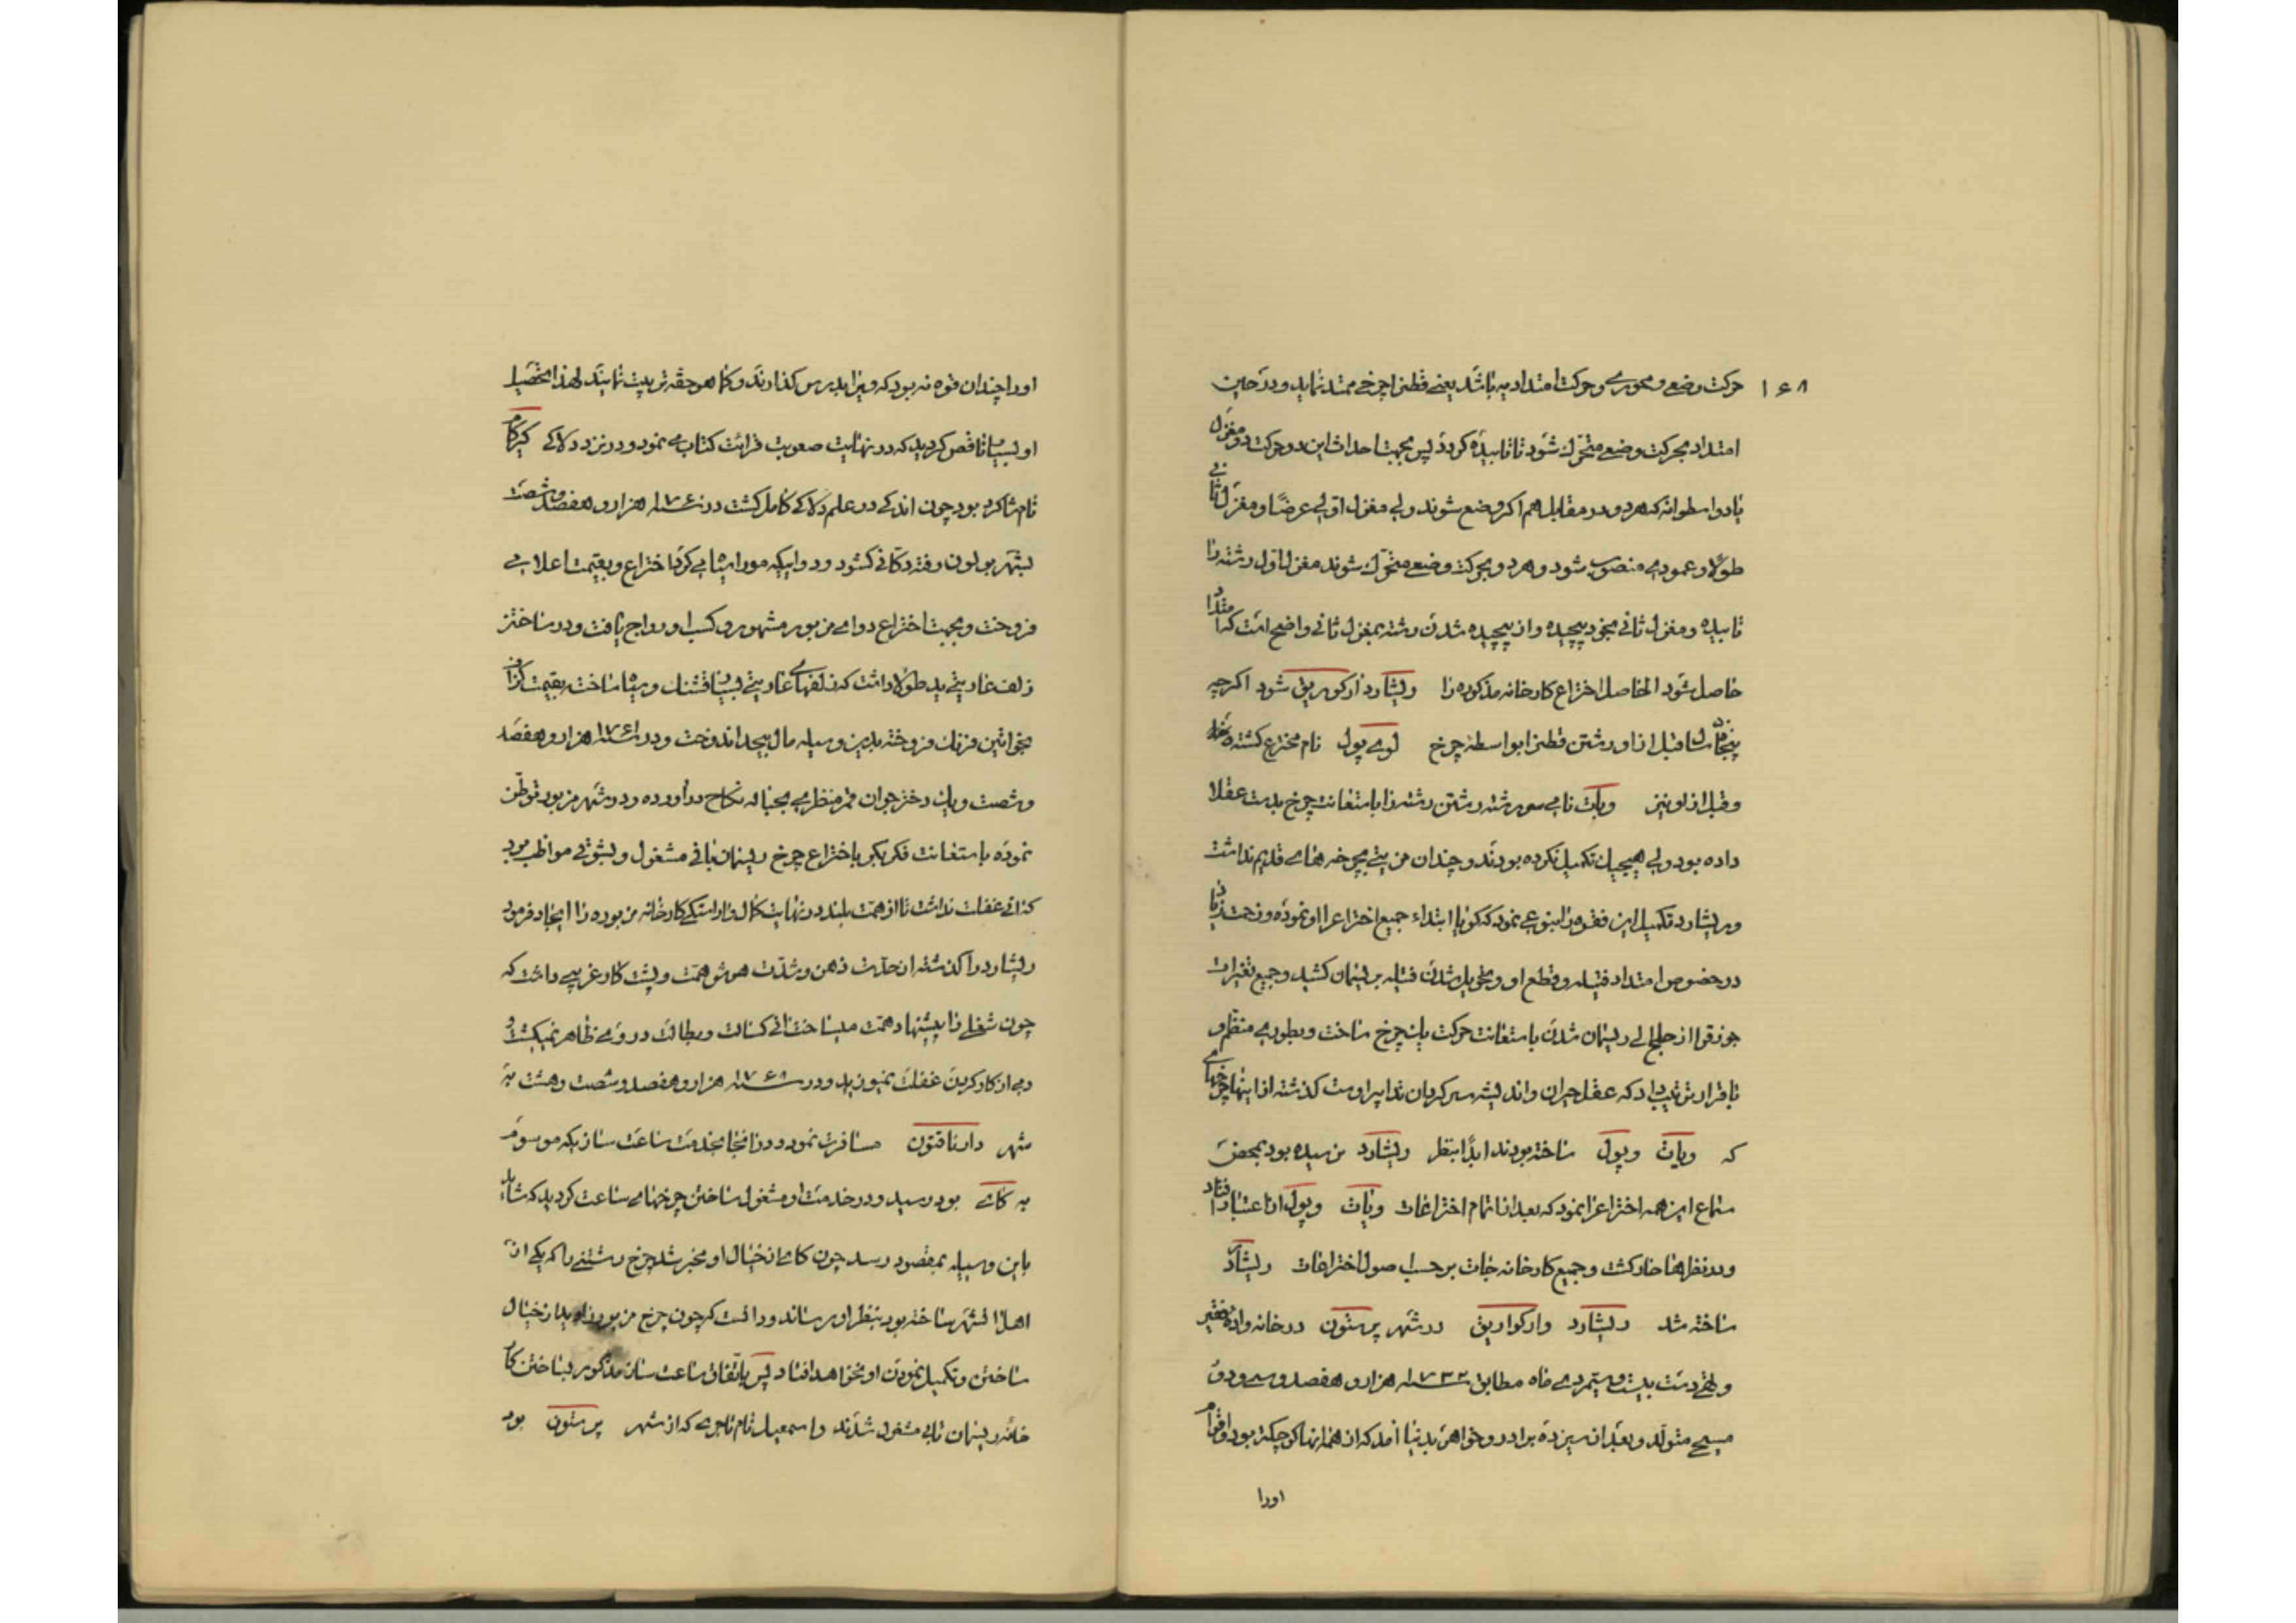 ۱۶۸
حرکت وضعی و محوری و حرکت امتدادیه باشد یعنی قطن را چرخی ممتد نماید و در حین
امتداد بحرکت وضعی متحرک شود تا تابیده کردد پس بجهت احداث این دو حرکت دو مغزل
یا دو اسطوانه که هر دو در مقابل هم اکر وضع شوند ولی مغزل اولی عرضًا و مغزل ثانی
طولا و عمودی منصوب شود و هر دو بحرکت وضعی متحرک شوند مغزل اول رشته را
تابیده و مغزل ثانی بخود پیچیده و از پیچیده شدن رشته بمغزل ثانی واضح است که امتداد
حاصل شود الحاصل اختراع کارخانه مذکوره را ریشارد ارکوریق شود اکرچه
پنجاه سال قبل از او رشتن قطن را بواسطه چرخ لوی پول نام مخترع کشته
و قبل از او نیز ویات نامی سر رشته رشتن رشته را باستعانت چرخ بدست عقلا
داده بود ولی هیچیک تکمیل نکرده بودند و چندان مزیتی بچرخه های قدیم نداشت
و ریشارد تکمیل این فقره را بنوعی نمود که کویا ابتداء جمیع اختراع را او نموده و زحمت زیاد
در خصوص امتداد فتیله و قطع او و تحویل شدن فتیله بریسمان کشید و جمیع تغیرات
جوزقرا از حلج الی ریسمان شدن باستعانت حرکت یک چرخ ساخت و بطوری منظم و
باقرار ترتیب داد که عقل حیران و اندیشه سرکردان تدابیر اوست کذشته از اینها چرخهای
که ویات و پول ساخته بودند ابدًا بنظر ریشارد نرسیده بود بمحض
سماع این همه اختراع را نمود که بعد از اتمام اختراعات ویات و پول از اعتبار افتاد
و در نظرها خار کشت و جمیع کارخانه جات بر حسب اصول اختراعات ریشارد
ساخته شد ریشارد وارکواریق در شهر پرستون در خانواده فقیر
و تهی دست بیست و سیم دی ماه مطابق سنه ۱۷۳۲ هزار و هفصد و سی و دو
مسیحی متولد و بعد از سیزده برادر و خواهر بدنیا آمد که از همه آنها کوچکتر بود و اقوام
اورا
اورا چندان قوه نه بود که ویرا بدرس کذارند و کما هو حقه تربیت نمایند لهذا تحصیل
او بسیار ناقص کردید که در نهایت صعوبت قرائت کتاب می نمود و در نزد دلاکی کیرکام
نام شاکرد بود چون اندکی در علم دلاکی کامل کشت در سنه ۱۷۶۰ هزار و هفصد و شصت
بشهر بولون رفته دکانی کشود و دوائیکه مو را سیاه می کرد اختراع و بقیمت اعلا می
فروخت و بجهت اختراع دوای مزبور مشهور و کسب او رواج یافت و در ساختن
زلف عاریتی ید طولا داشت که زلفهای عاریتی بسیار قشنک و سیاه ساخته بقیمت کزاف
بخواتین فرنک فروخته بدین وسیله مال بیحد اندوخت و در سنه ۱۷۶۱ هزار و هفصد
و شصت و یک دختر جوان قمر منظری بحباله نکاح درآورده و در شهر مزبور توطن
نموده باستعانت فکر بکر باختراع چرخ ریسمان بافی مشغول و بشوقی مواظب بود
که آنی غفلت نداشت تا از همت بلند در نهایت کمال و آراستکی کارخانه مزبوره را ایجاد فرمود
ریشارد را کذشته از حدّت ذهن و شدّت هوش همّت و پشت کار غریبی داشت که
چون شغلی را پیشنهاد همت میساخت آنی کسالت و بطالت در روی ظاهر نمیکشت و
دمی از کار کردن غفلت نمیورزید و در سنه ۱۷۶۸ هزار و هفصد و شصت و هشت به
شهر دارناقتون مسافرت نمود و در آنجا بخدمت ساعت سازیکه موسوم
به کای بود رسید و در خدمت او مشغول ساختن چرخهای ساعت کردید که شاید
باین وسیله بمقصود رسد چون کای از خیال او مخبر شد چرخ رشتنی را که یکی از
اهل آن شهر ساخته بود بنظر او رساند و دانست که چون چرخ مزبور را او بیند از خیال
ساختن و تکمیل نمودن او نخواهد افتاد پس باتفاق ساعت ساز مذکور بساختن کار
خانه ریسمان تابی مشغول شدند و اسمعیل نام تاجری که از شهر پرستون بود